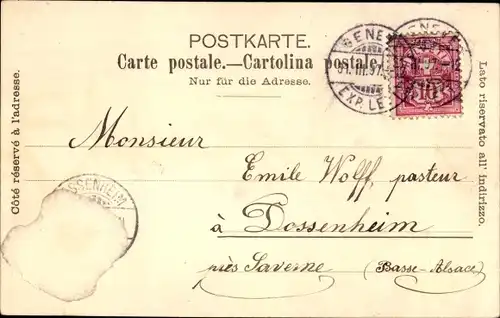 POSTKARTE.
Carte postale.—Cartolina postale.
Nur für die Adresse.
Côté réservé à l'adresse.
Lato riservato all' indirizzo.
EXP. LE
10
Monsieur
Emile Wolff, pasteur
à Dossenheim
près Saverne (Basse-Alsace)
OSSENHEIM